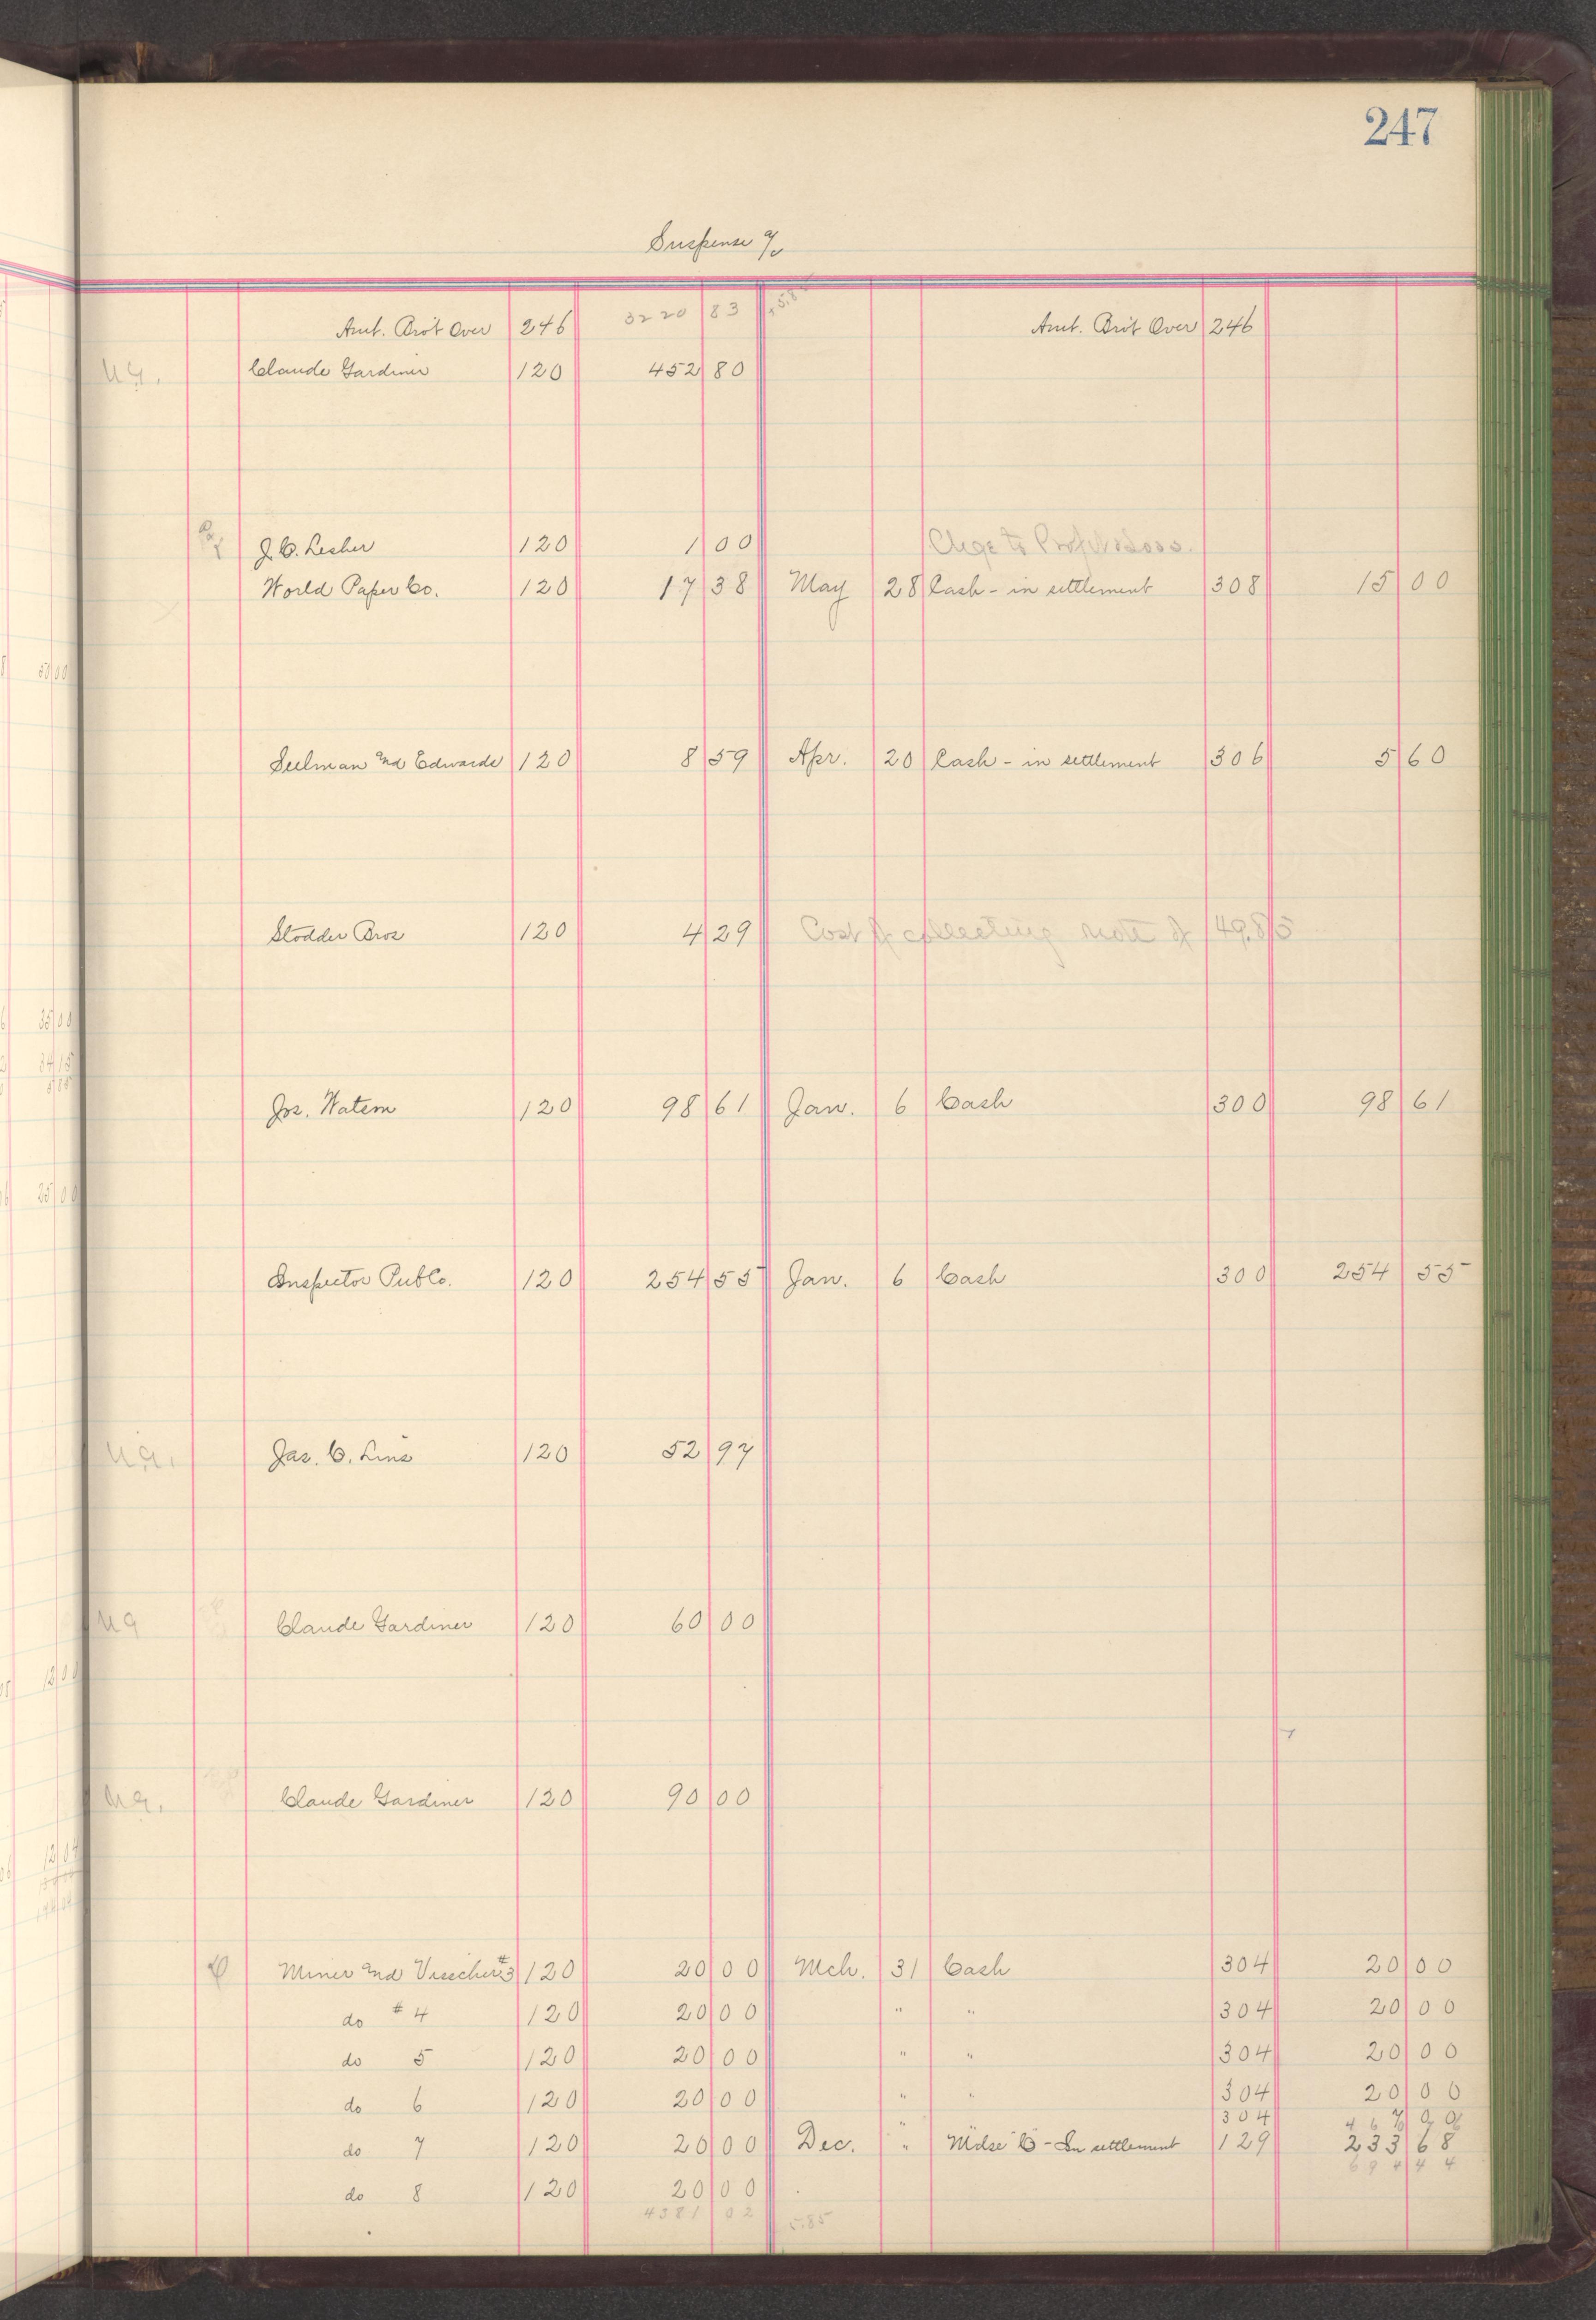 247
Suspense a/c
Amt. Bro't Over 246 3220 83 Amt. Bro't Over 246
Claude Gardiner 120 452 80
J. C. Lesher 120 1 00 Chge to Profit & Loss.
World Paper Co. 120 17 38 May 28 Cash - in settlement 308 15 00
Seelman and Edwards 120 8 59 Apr. 20 Cash - in settlement 306 5 60
Stodder Bros 120 4 29 Cost of collecting note of 49.85
Jos. Watson 120 98 61 Jan. 6 Cash 300 98 61
Inspector Pub Co. 120 254 55 Jan. 6 Cash 300 254 55
Jas. C. Lins 120 52 97
Claude Gardiner 120 60 00
Claude Gardiner 120 90 00
Miner and Visscher #3 120 20 00 Mch. 31 Cash 304 20 00
do #4 120 20 00 " " 304 20 00
do 5 120 20 00 " " 304 20 00
do 6 120 20 00 " " 304 20 00
" 304
do 7 120 20 00 Dec. " Mdse C - In settlement 129 233 68
694 44
do 8 120 20 00
4381 02 5.85